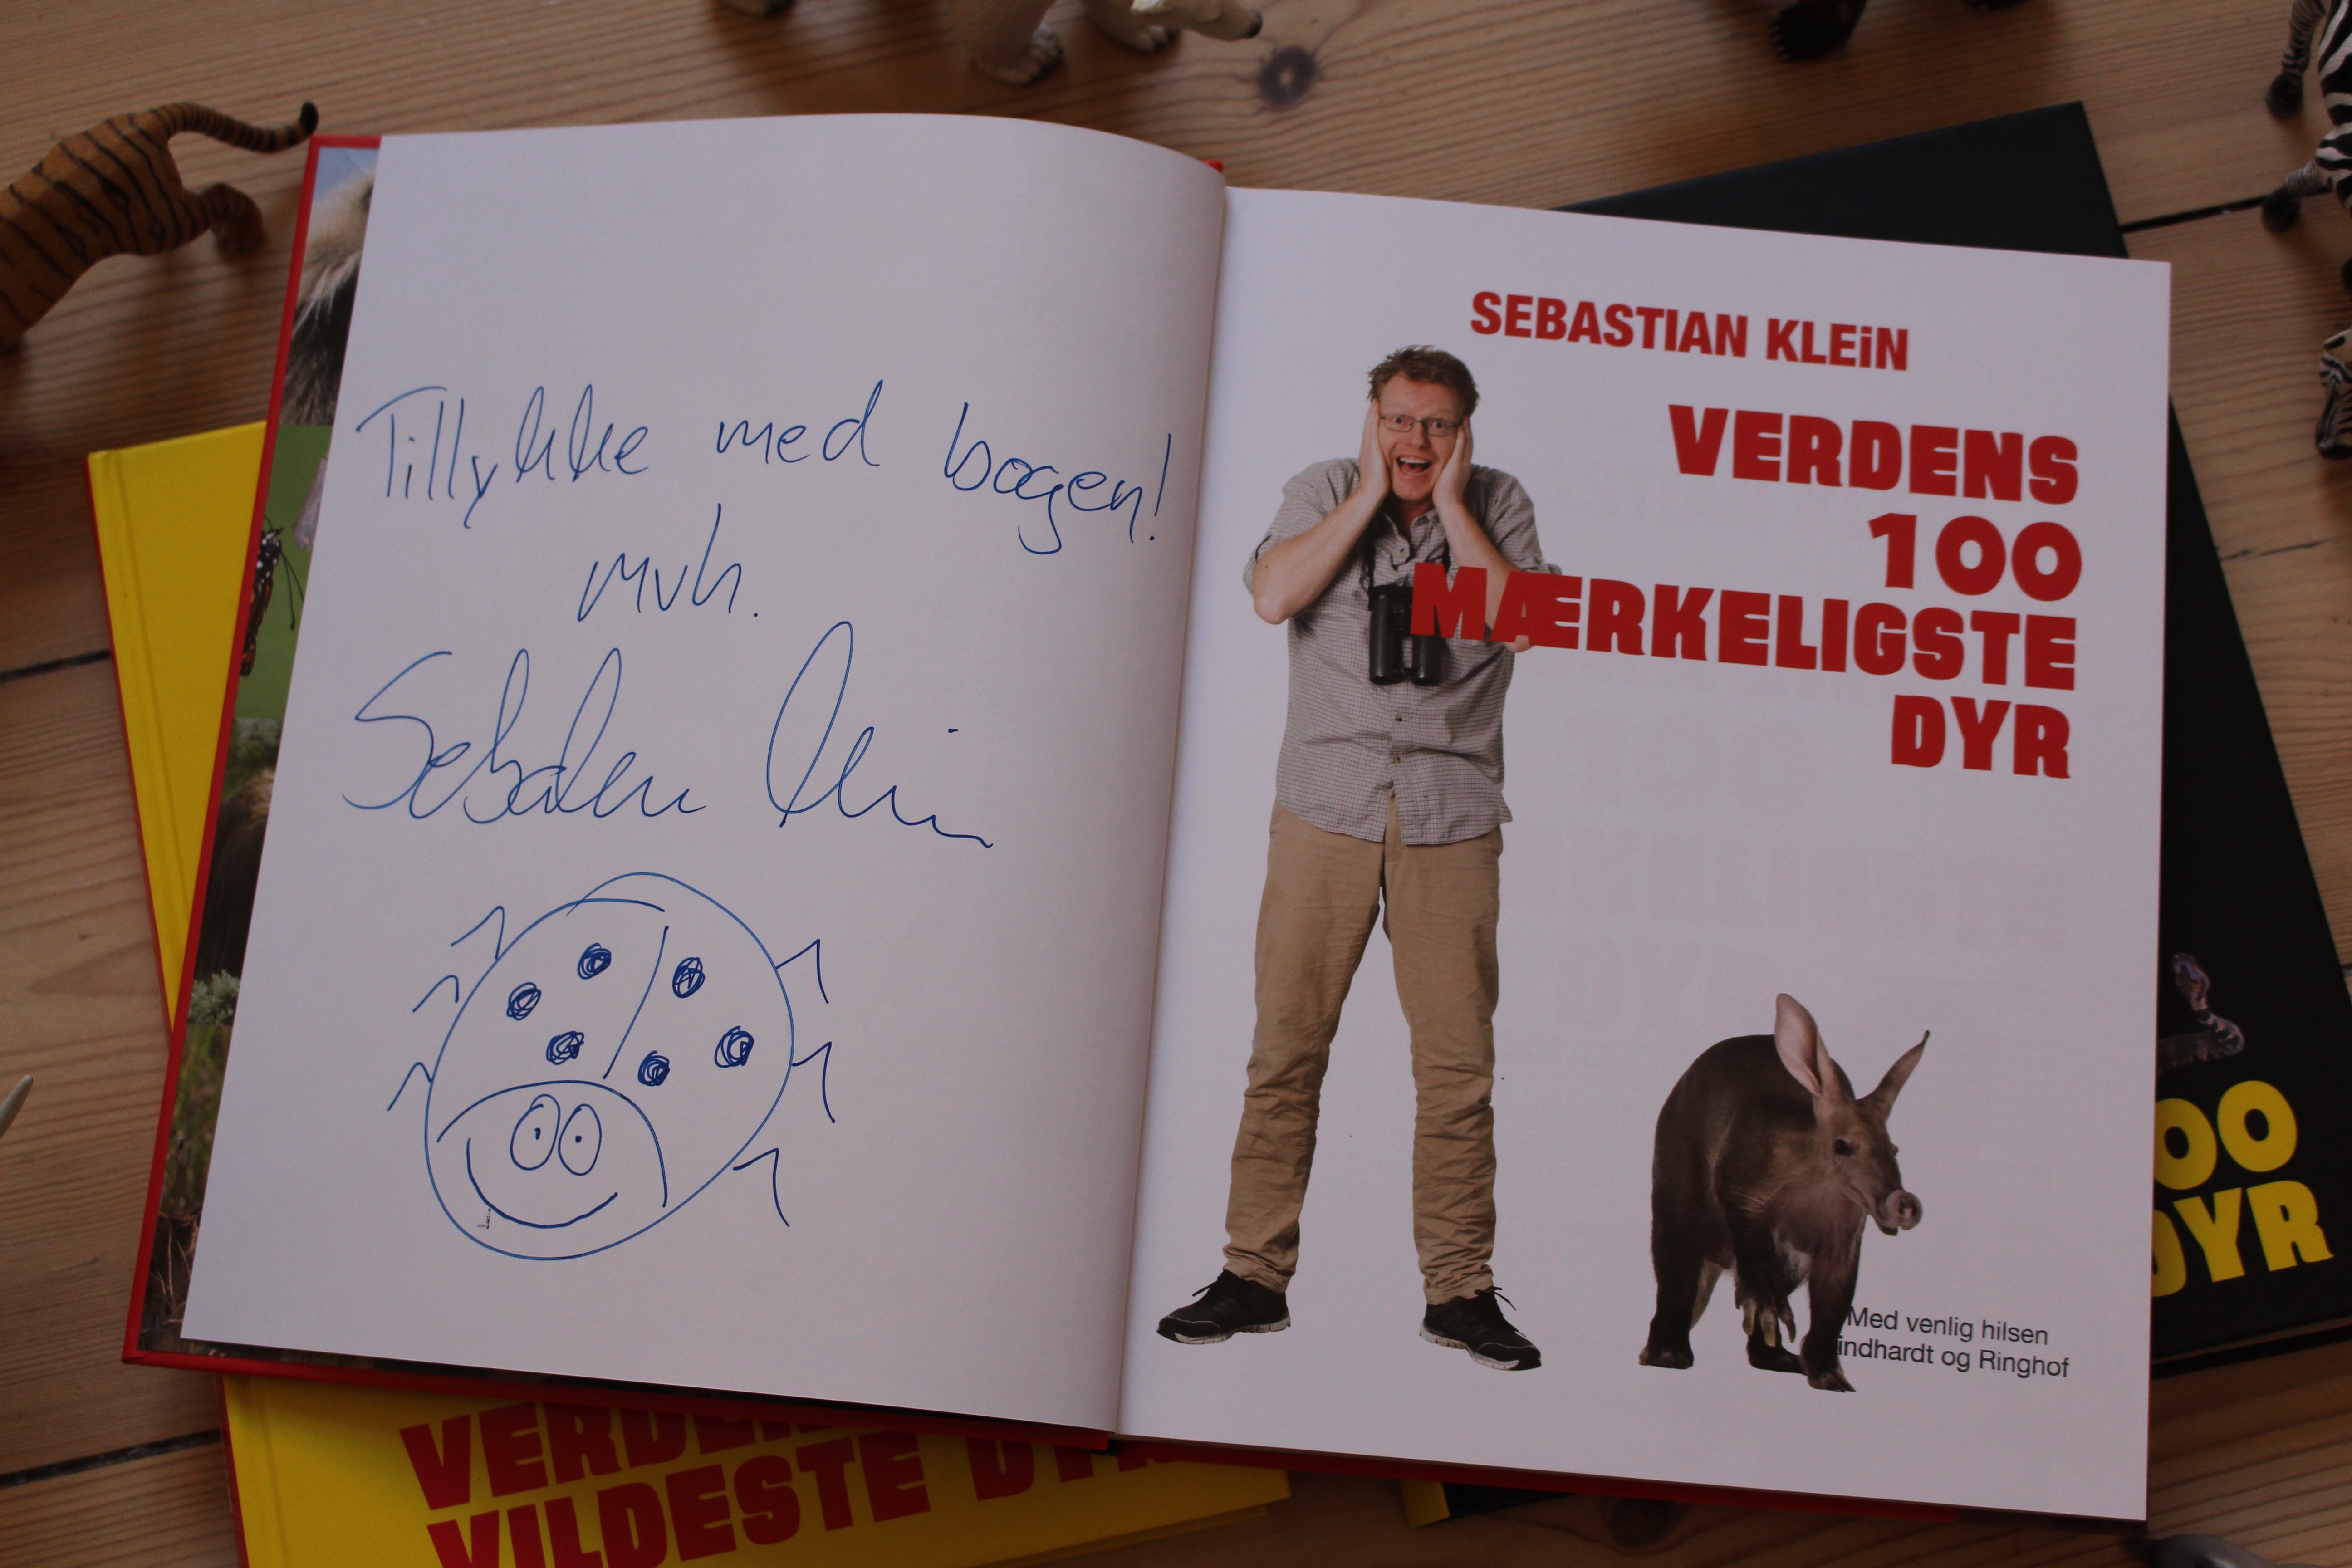 Tillykke med bogen!
mvh.
Sebastian Klein
SEBASTIAN KLEiN
VERDENS
100
MÆRKELIGSTE
DYR
Med venlig hilsen
indhardt og Ringhof
VILDESTE DYR
00
DYR